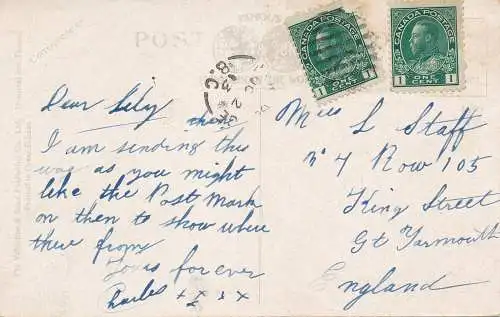 POST
CANADA POSTAGE
1 ONE CENT 1
CANADA POSTAGE
1 ONE CENT 1
B.C.
Dear Lily
I am sending this
way as you might
like the Post Mark
on then to show where
there from
Loves forever
Charles + £ x x
Miss L Staff
No 4 Row 105
King Street
Gt Yarmouth
England